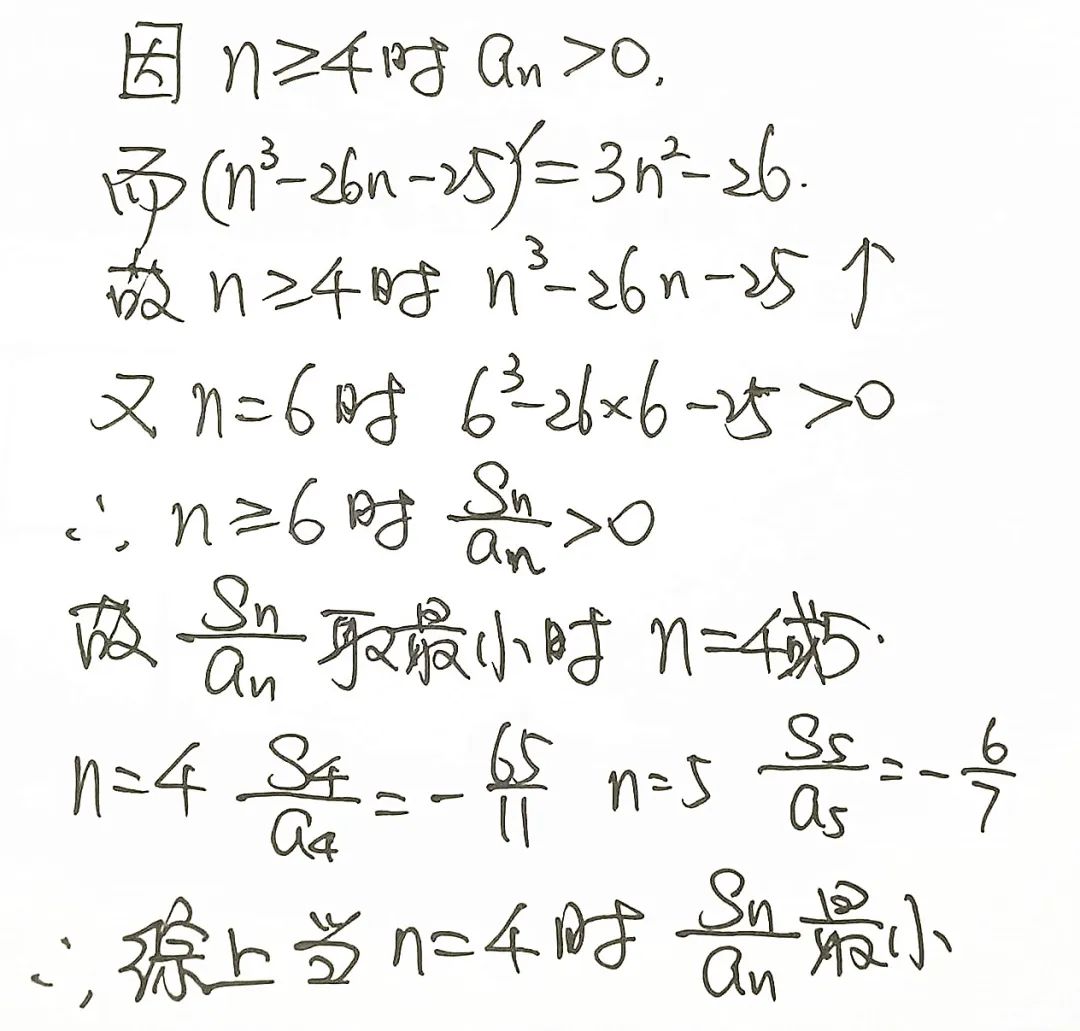 因 n≥4时 aₙ>0.
而(n³-26n-25)′=3n²-26.
故 n≥4时 n³-26n-25 ↑
又 n=6时 6³-26×6-25>0
∴ n≥6时 Sₙ/aₙ>0
故 Sₙ/aₙ 取最小时 n=4或5.
n=4 S₄/a₄=-65/11 n=5 S₅/a₅=-6/7
∴ 综上当 n=4时 Sₙ/aₙ最小